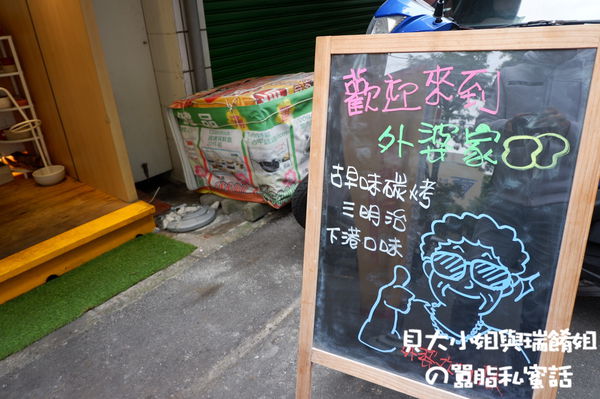 歡迎來到
外婆家
古早味碳烤
三明治
下港口味
貝大小姐與瑞餚姐
の嚣脂私蜜話